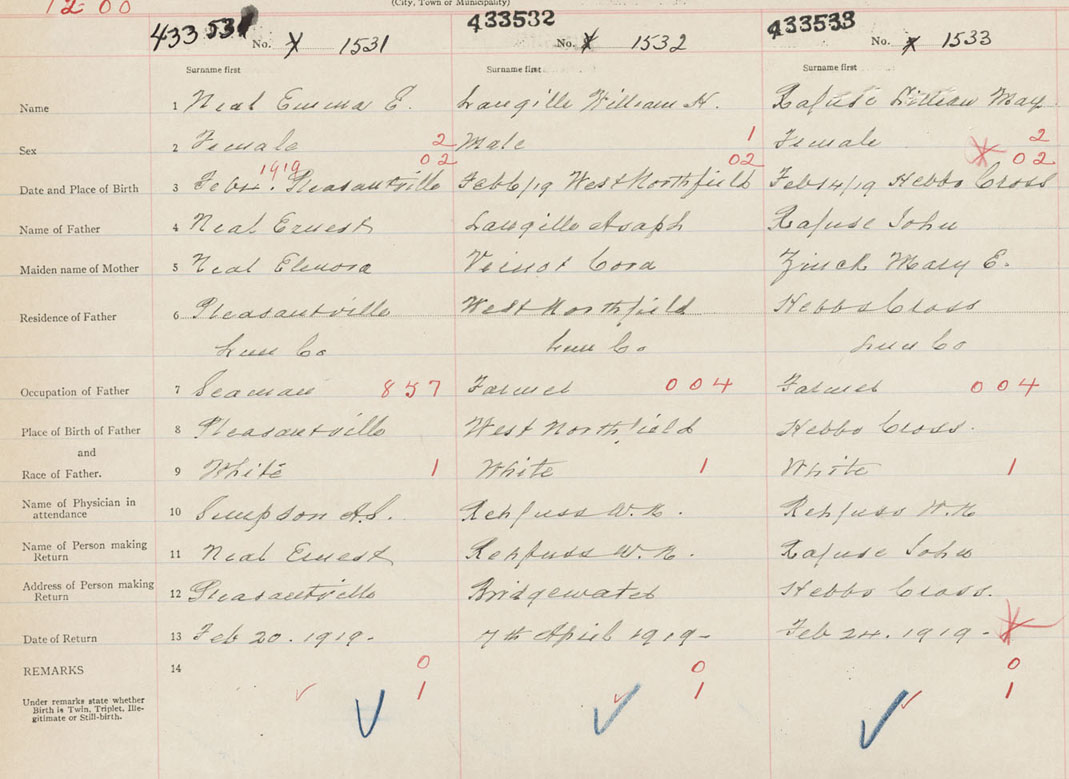 12 00
(City, Town or Municipality)
433531 No. 1531 433532 No. 1532 433533 No. 1533
Surname first Surname first Surname first
Name 1 Neal Emma E. Langille William H. Rafuse Lillian May
Sex 2 Female 2 Male 1 Female 2
1919 02 02 02
Date and Place of Birth 3 Feb 4. Pleasantville Feb 6/19 West Northfield Feb 14/19 Hebbs Cross
Name of Father 4 Neal Ernest Langille Asaph Rafuse John
Maiden name of Mother 5 Neal Elenora Veinot Cora Zinck Mary E.
Residence of Father 6 Pleasantville West Northfield Hebbs Cross
Lun Co Lun Co Lun Co
Occupation of Father 7 Seaman 857 Farmer 004 Farmer 004
Place of Birth of Father 8 Pleasantville West Northfield Hebbs Cross.
and
Race of Father. 9 White 1 White 1 White 1
Name of Physician in
attendance 10 Simpson A.S. Rehfuss W.N. Rehfuss W.N
Name of Person making
Return 11 Neal Ernest Rehfuss W.N. Rafuse John
Address of Person making
Return 12 Pleasantville Bridgewater Hebbs Cross.
Date of Return 13 Feb 20. 1919- 7th April 1919- Feb 24. 1919-
REMARKS 14 0 0 0
Under remarks state whether 1 1 1
Birth is Twin, Triplet, Ille-
gitimate or Still-birth.